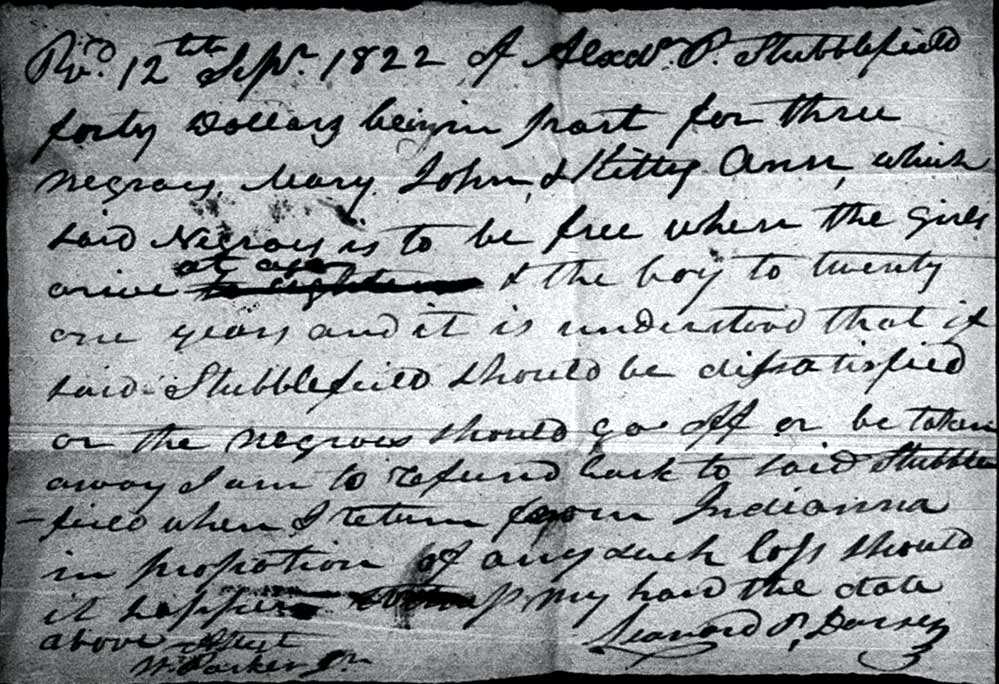 Rcvd. 12th Sepr. 1822 of Alexdr. P. Stubblefield
forty Dollars being in part for three
negroes, Mary, John, & Kitty Ann, which
said Negroes is to be free when the girls
arive at age & the boy to twenty
one years and it is understood that if
said Stubblefield should be dissatisfied
or the negroes should go off or be taken
away I am to refund back to said Stubble
-field when I return from Indianna
in propotion if any such loss should
it happen my hand the date
above Attest Leonard P. Dorsey
W. Parker Jr